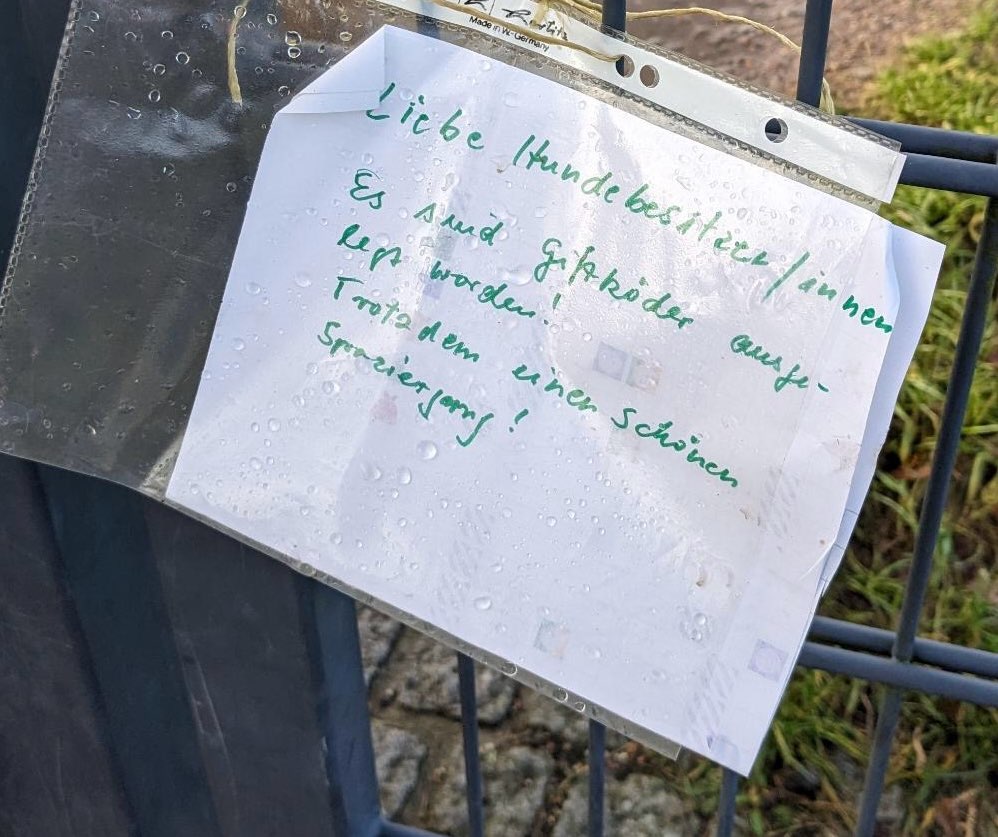 Made in W.-Germany
Liebe Hundebesitzer/innen
Es sind Giftköder ausge-
legt worden!
Trotzdem einen schönen
Spaziergang!